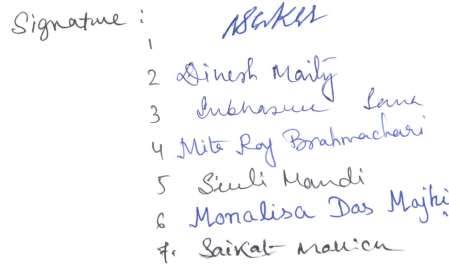 Signature :
1
2 Dinesh Maity
3
4 Mita Roy Brahmachari
5 Siuli Mandi
6 Monalisa Das Majhi
7. Saikat Mallick